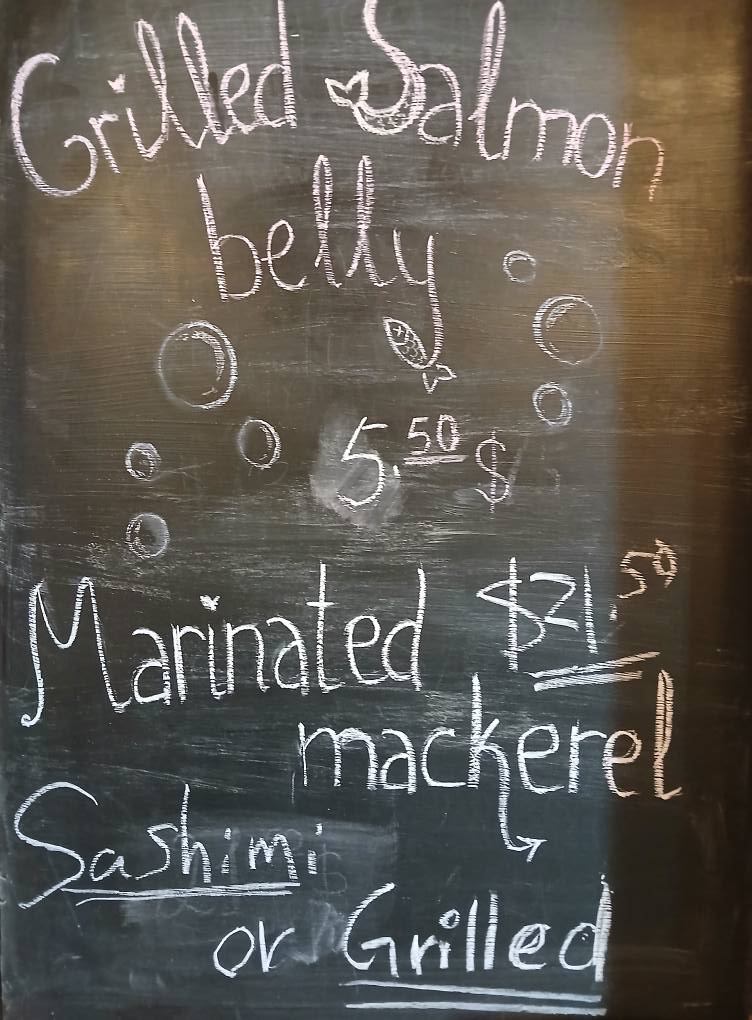 Grilled Salmon
belly
5.50 $
Marinated $21.50
mackerel
Sashimi
or Grilled